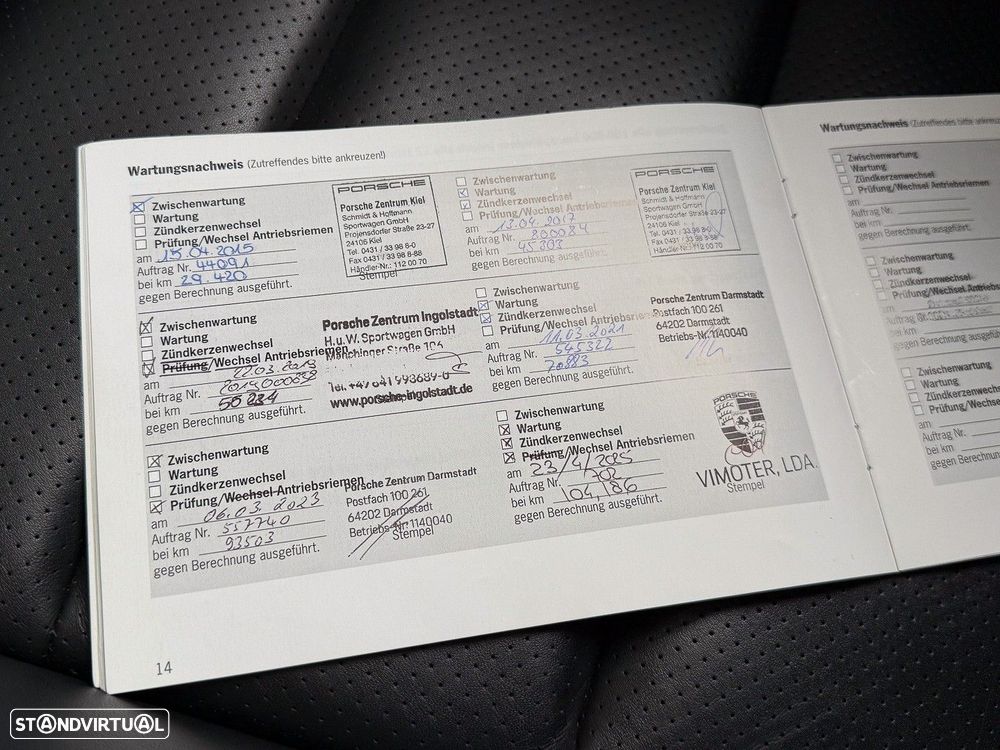 Wartungsnachweis (Zutreffendes bitte ankreuzen!)
Zwischenwartung
Wartung
Zündkerzenwechsel
Prüfung/Wechsel Antriebsriemen
am 15.04.2015
Auftrag Nr. 44091
bei km 29.420
gegen Berechnung ausgeführt.
PORSCHE
Porsche Zentrum Kiel
Schmidt & Hoffmann
Sportwagen GmbH
Projensdorfer Straße 23-27
24106 Kiel
Tel. 0431 / 33 98 6-0
Fax 0431 / 33 98 8-88
Händler-Nr.: 112 00 70
Stempel
Zwischenwartung
Wartung
Zündkerzenwechsel
Prüfung/Wechsel Antriebsriemen
am 13.04.2017
Auftrag Nr. 800084
bei km 45303
gegen Berechnung ausgeführt.
PORSCHE
Porsche Zentrum Kiel
Schmidt & Hoffmann
Sportwagen GmbH
Projensdorfer Straße 23-27
24106 Kiel
Tel. 0431 / 33 98 6-0
Fax 0431 / 33 98 8-88
Händler-Nr.: 112 00 70
Zwischenwartung
Wartung
Zündkerzenwechsel
Prüfung/Wechsel Antriebsriemen
am 22.03.2019
Auftrag Nr.
bei km
gegen Berechnung ausgeführt.
Porsche Zentrum Ingolstadt
H.u.W. Sportwagen GmbH
Manchinger Straße 104
www.porsche-ingolstadt.de
Zwischenwartung
Wartung
Zündkerzenwechsel
Prüfung/Wechsel Antriebsriemen
am 11.03.2021
Auftrag Nr. 545322
bei km 70883
gegen Berechnung ausgeführt.
Porsche Zentrum Darmstadt
Postfach 100 261
64202 Darmstadt
Betriebs-Nr. 1140040
Zwischenwartung
Wartung
Zündkerzenwechsel
Prüfung/Wechsel Antriebsriemen
am 06.03.2023
Auftrag Nr. 557740
bei km 93503
gegen Berechnung ausgeführt.
Porsche Zentrum Darmstadt
Postfach 100 261
64202 Darmstadt
Betriebs-Nr. 1140040
Stempel
Zwischenwartung
Wartung
Zündkerzenwechsel
Prüfung/Wechsel Antriebsriemen
am 23/4/2025
Auftrag Nr. 702
bei km 104,186
gegen Berechnung ausgeführt.
PORSCHE
VIMOTER, LDA.
Stempel
14
Wartungsnachweis (Zutreffendes bitte ankreuzen
Zwischenwartung
Wartung
Zündkerzenwechsel
Prüfung/Wechsel Antriebsriemen
am
Auftrag Nr.
bei km
gegen Berechnung ausgeführt.
Zwischenwartung
Wartung
Zündkerzenwechsel
Prüfung/Wechsel Antriebs
am
Auftrag Nr.
bei km
gegen Berechnung ausgeführt
Zwischenwartung
Wartung
Zündkerzenwechsel
Prüfung/Wechsel Ant
am
Auftrag Nr.
bei km
gegen Berechnung
STANDVIRTUAL